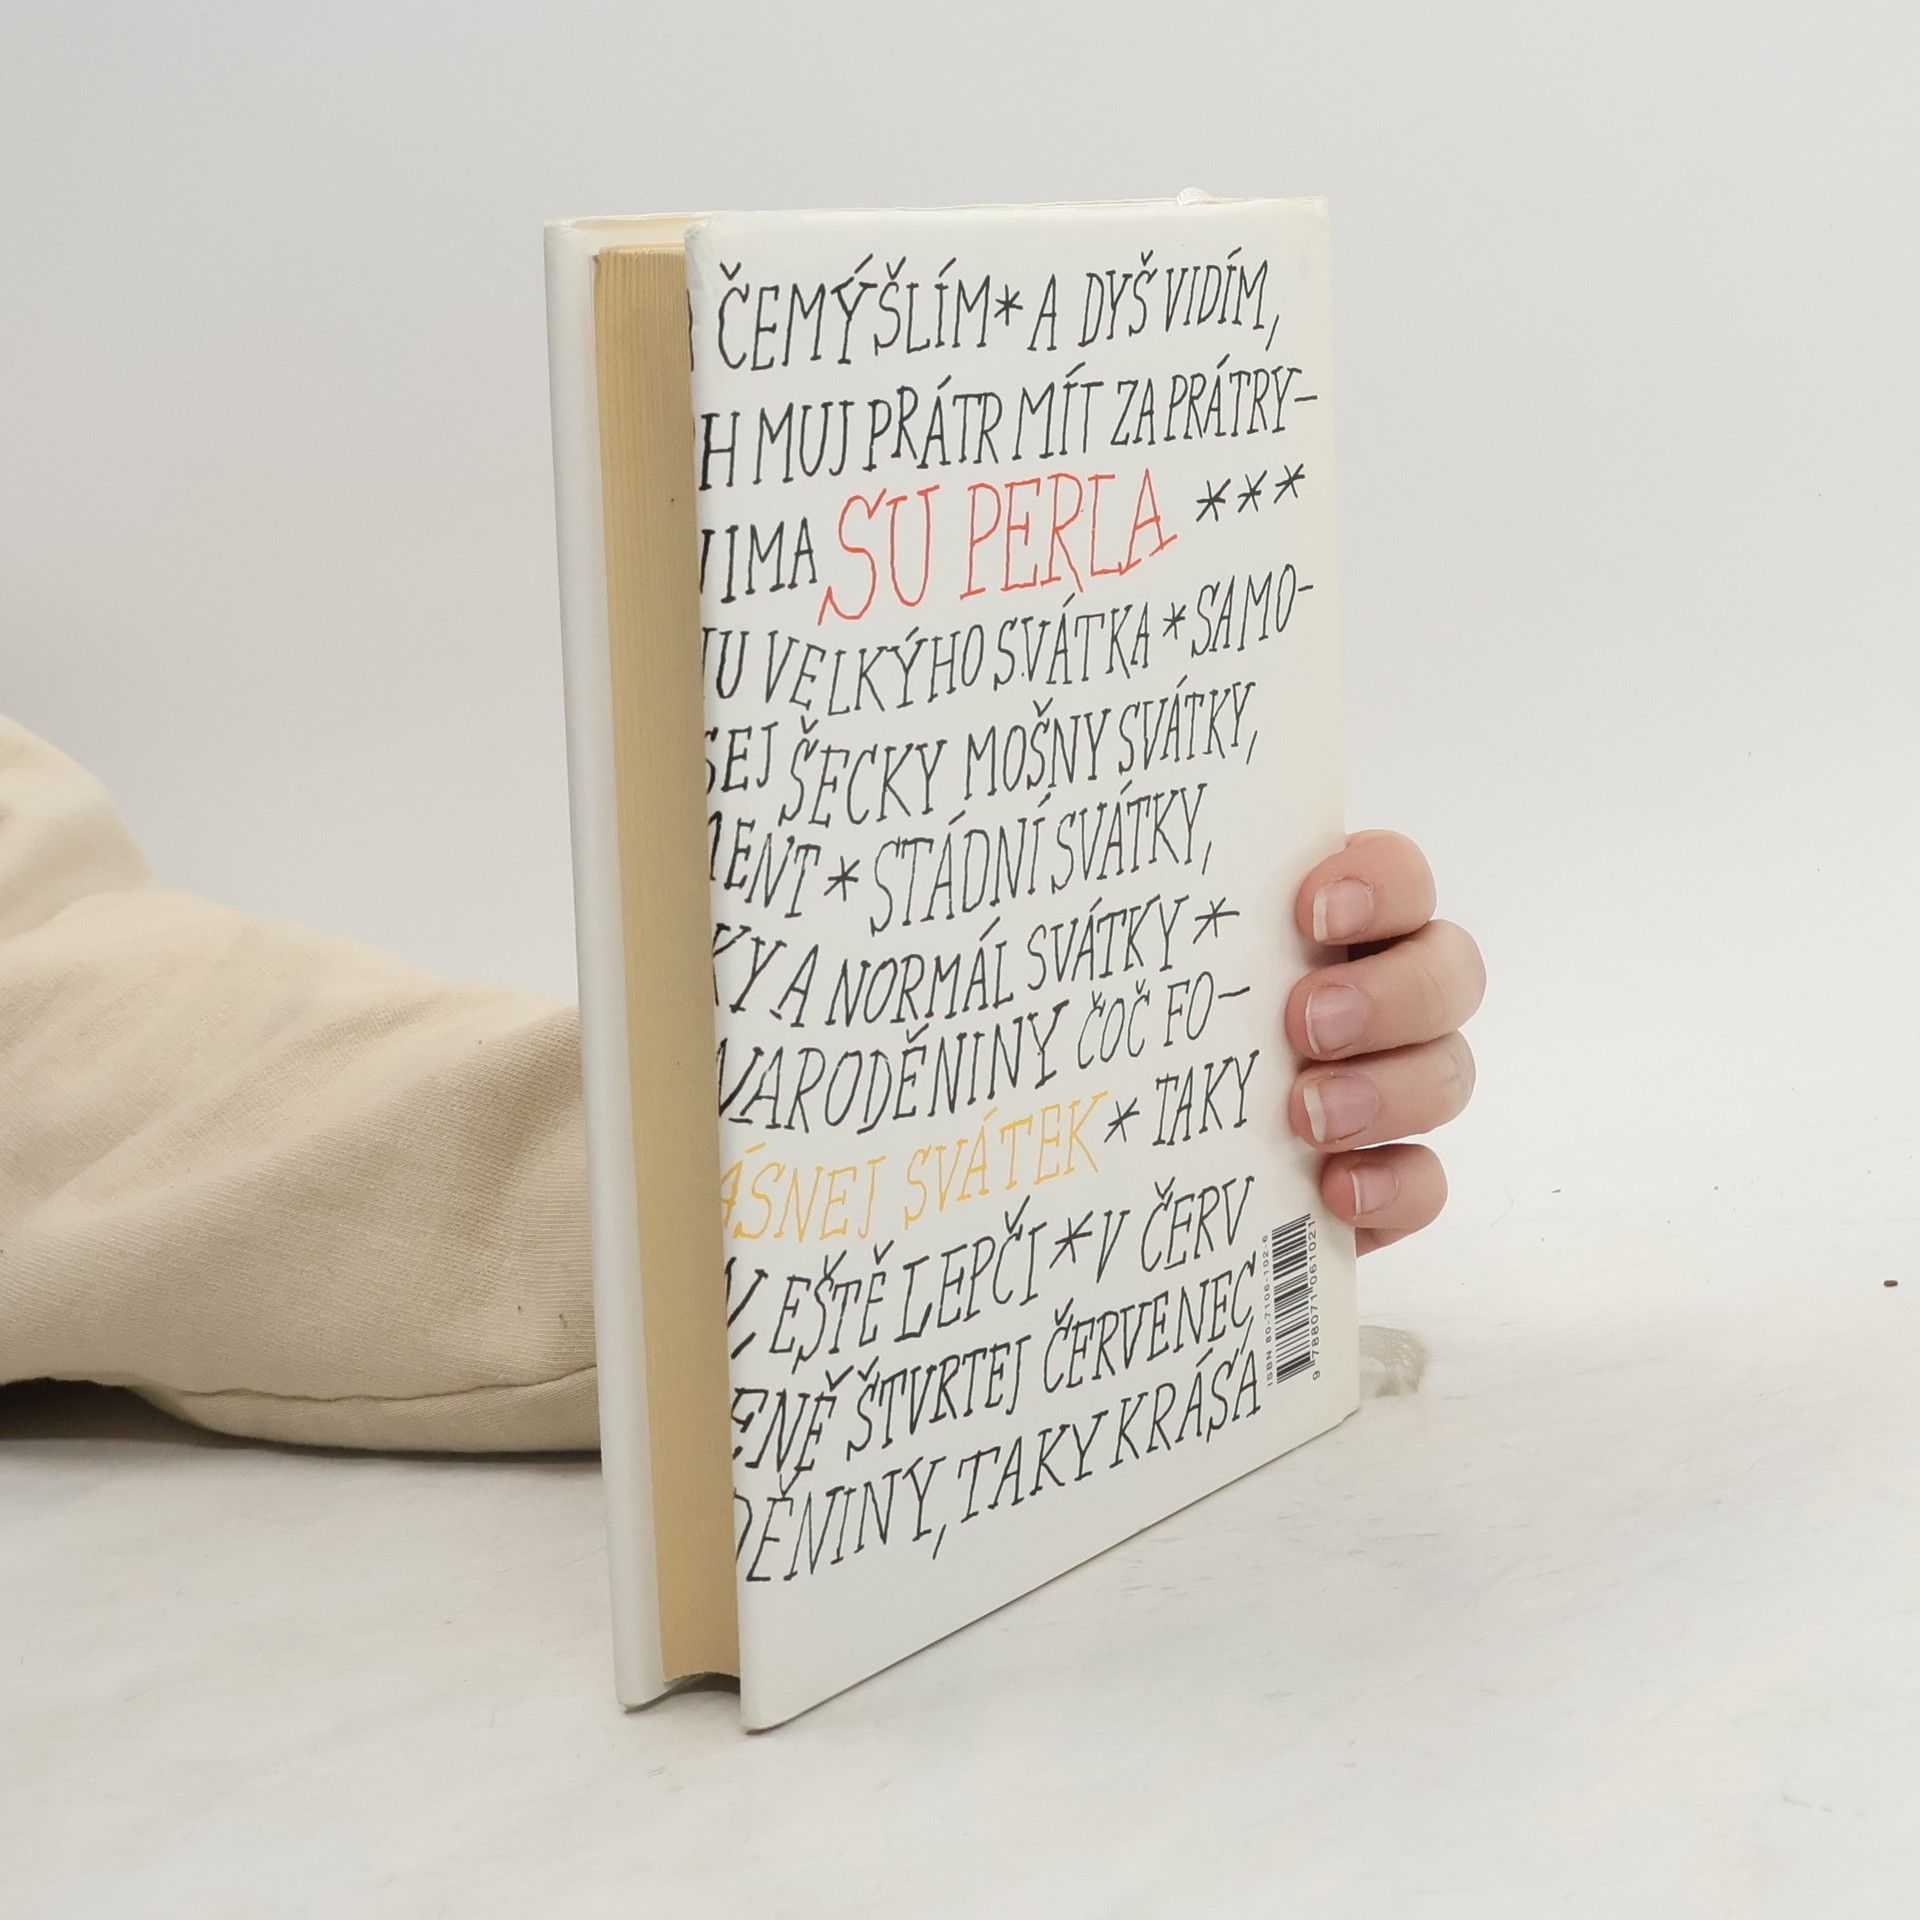 ČEMÝŠLÍM * A DYŠ VIDÍM,
H MUJ PRÁTR MÍT ZA PRÁTRY-
IMA SU PERLA ***
U VELKÝHO SVÁTKA * SAMO-
SEJ ŠECKY MOŠNY SVÁTKY,
ENT * STÁDNÍ SVÁTKY,
KY A NORMÁL SVÁTKY *
NARODĚNINY ČOČ FO-
ÁSNEJ SVÁTEK * TAKY
EŠTĚ LEPČI * V ČERV
ENĚ ŠTVRTEJ ČERVENEC,
DĚNINY, TAKY KRÁSA
ISBN 80-7106-102-6
9 788071 061021